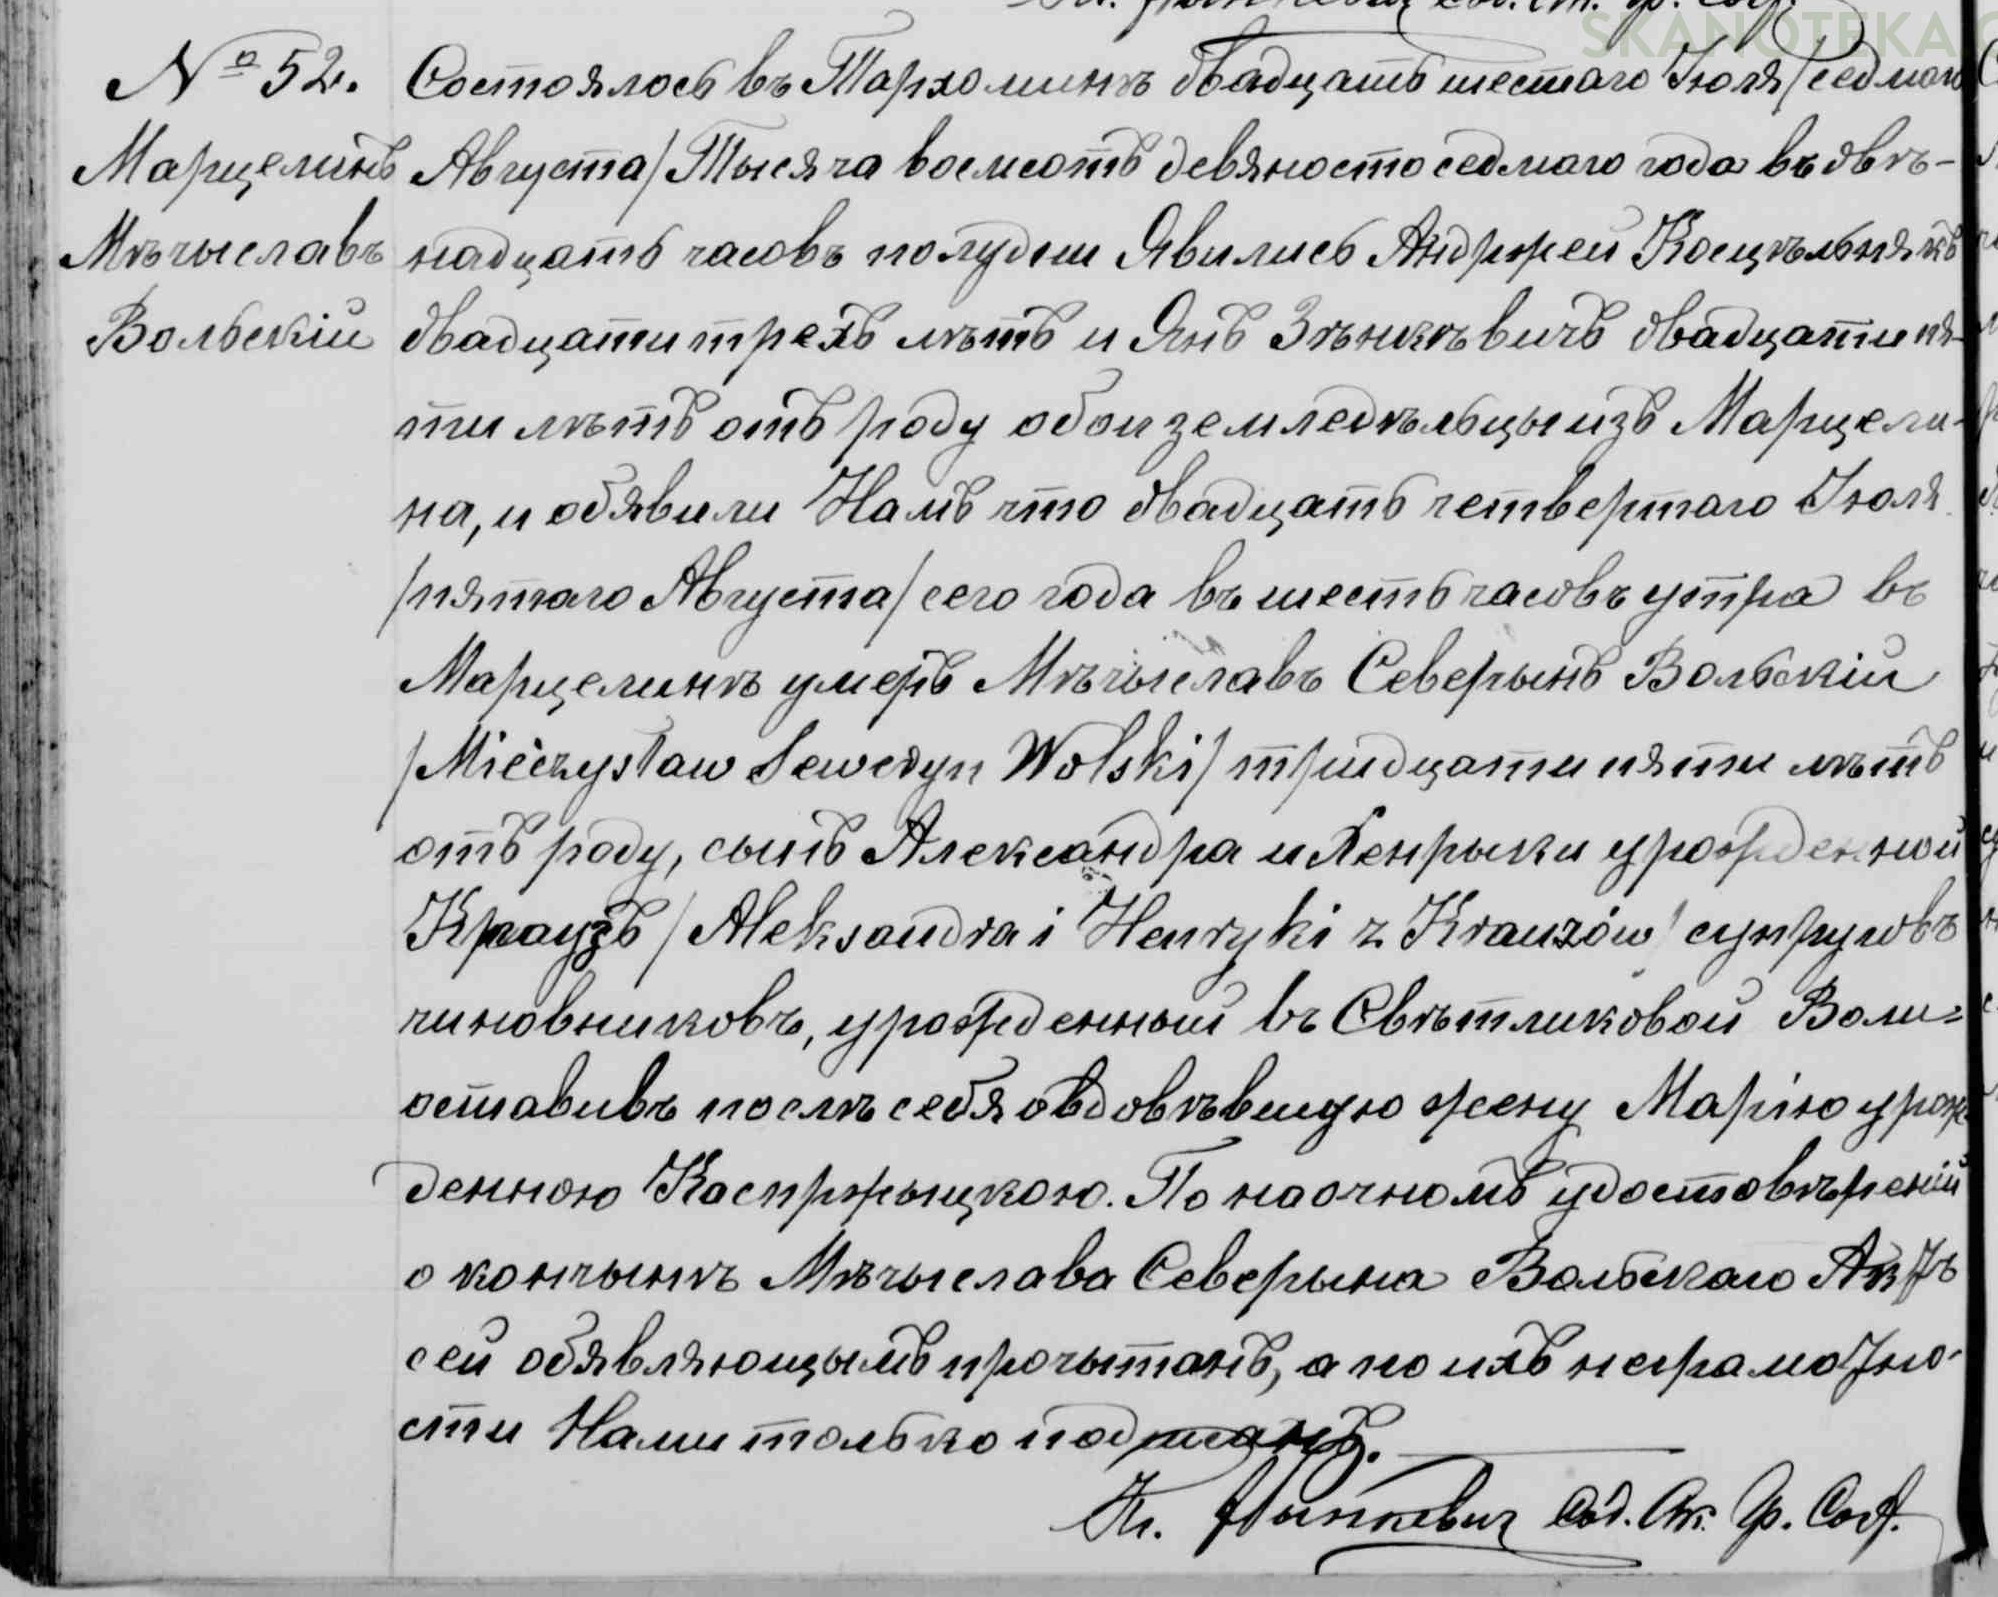 SKANOTEKA
№ 52.
Марцелинъ
Мѣчыславъ
Вольскій
Состоялось въ Тархоминѣ двадцать шестаго Іюля /седмаго
Августа/ Тысяча восмсотъ девяносто седмаго года въ двѣ-
надцать часовъ полудни Явились Анджей Коцѣльнякъ
двадцати трехъ лѣтъ и Янъ Зѣнкѣвичъ двадцати пя-
ти лѣтъ отъ роду обои земледѣльцы изъ Марцели-
на, и обявили Намъ что двадцать четвертаго Іюля
/пятаго Августа/ сего года въ шесть часовъ утра въ
Марцелинѣ умеръ Мѣчыславъ Северынъ Вольскій
/Mieczysław Seweryn Wolski/ тридцати пяти лѣтъ
отъ роду, сынъ Александра и Хенрыки урожденной
Краузъ /Aleksandra i Henryki z Krauzów/ супруговъ
чиновниковъ, урожденный въ Свѣтликовой Воли=
оставивъ послѣ себя овдовѣвшую жену Марію урож
денною Каспржыцкою. По наочномъ удостовѣреніи
о кончынѣ Мѣчыслава Северына Вольскаго Актъ
сей обявляющымъ прочытанъ, а по ихъ неграмотно-
сти Нами только подписанъ.
Сод. Ак. Гр. Сост.